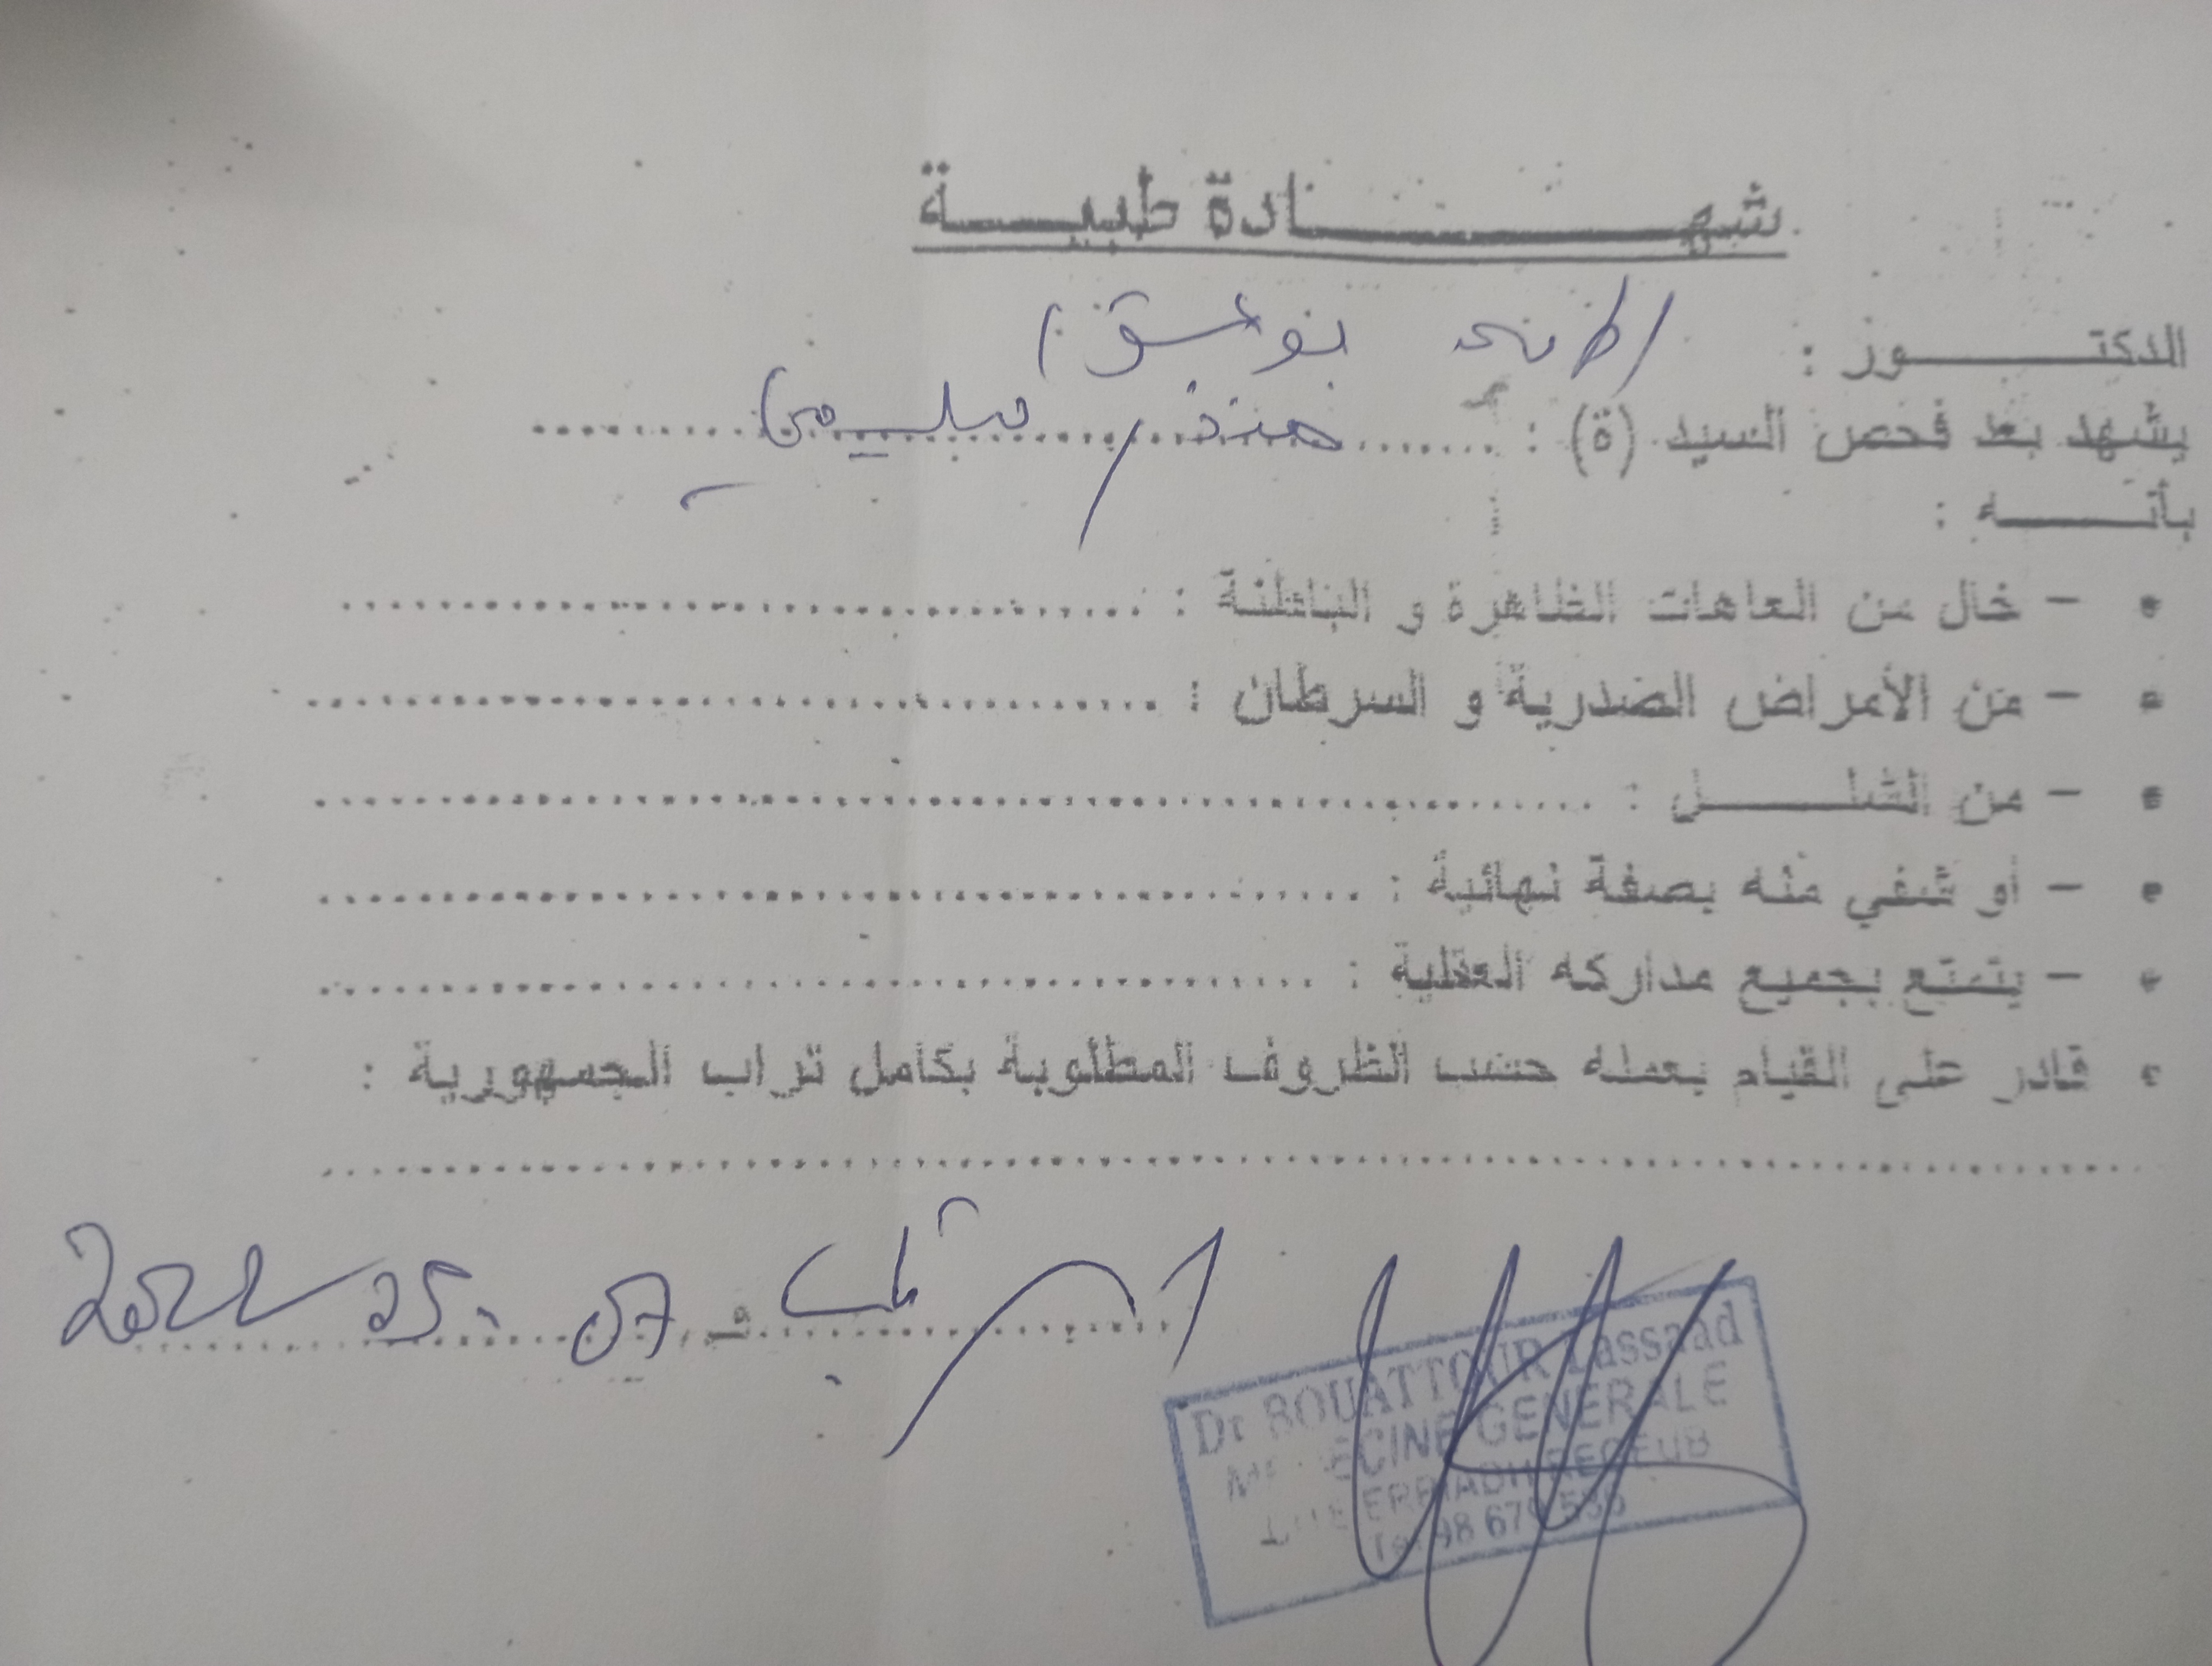 شهادة طبية
الدكتور :
يشهد بعد فحص السيد (ة) : منذر سليمي
بأنه :
• - خال من العاهات الظاهرة و الباطنة :
• - من الأمراض الصدرية و السرطان :
• - من الشلل :
• - أو شفي منه بصفة نهائية :
• - يتمتع بجميع مداركه العقلية :
• قادر على القيام بعمله حسب الظروف المطلوبة بكامل تراب الجمهورية :
الرقاب في 07 25
Dr BOUATTOUR Lassaad
MEDECINE GENERALE
REGEUB
Tel 98 679 536